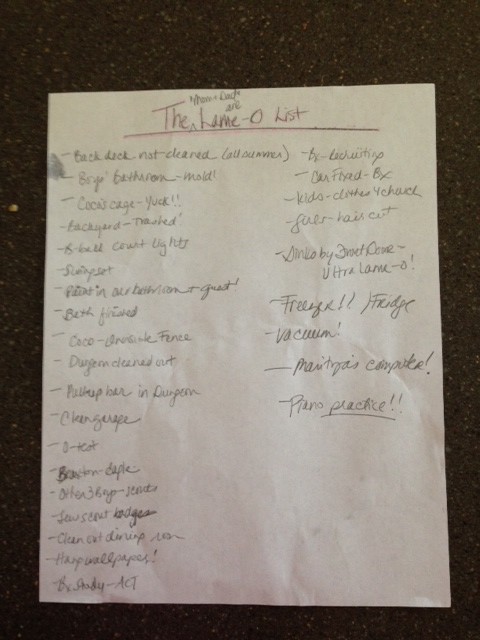 Mom + Dad
are
The Lame-O List
- Back deck not cleaned (all summer)
- Boys' Bathroom - mold!
- Coco's cage - Yuck!!
- Backyard - Trashed
- B-ball court lights
- Swingset
- Paint in our bathroom + guest!
- Bath fixed
- Coco - Invisible Fence
- Dungeon cleaned out
- Pullup bar in Dungeon
- Clean garage
- Eagle
- Other 3 Boys - scouts
- Sew scout badges
- Clean out dining room
- Hang wallpaper!
- Bx Study - ACT
- Bx - Recruiting
- Car Fixed - Bx
- kids - clothes 4 church
- hair cut
- Sinks by Front Door -
Ultra Lame-o!
- Freezer!! / Fridge
- Vacuum!
- Maritza's computer!
- Piano practice!!